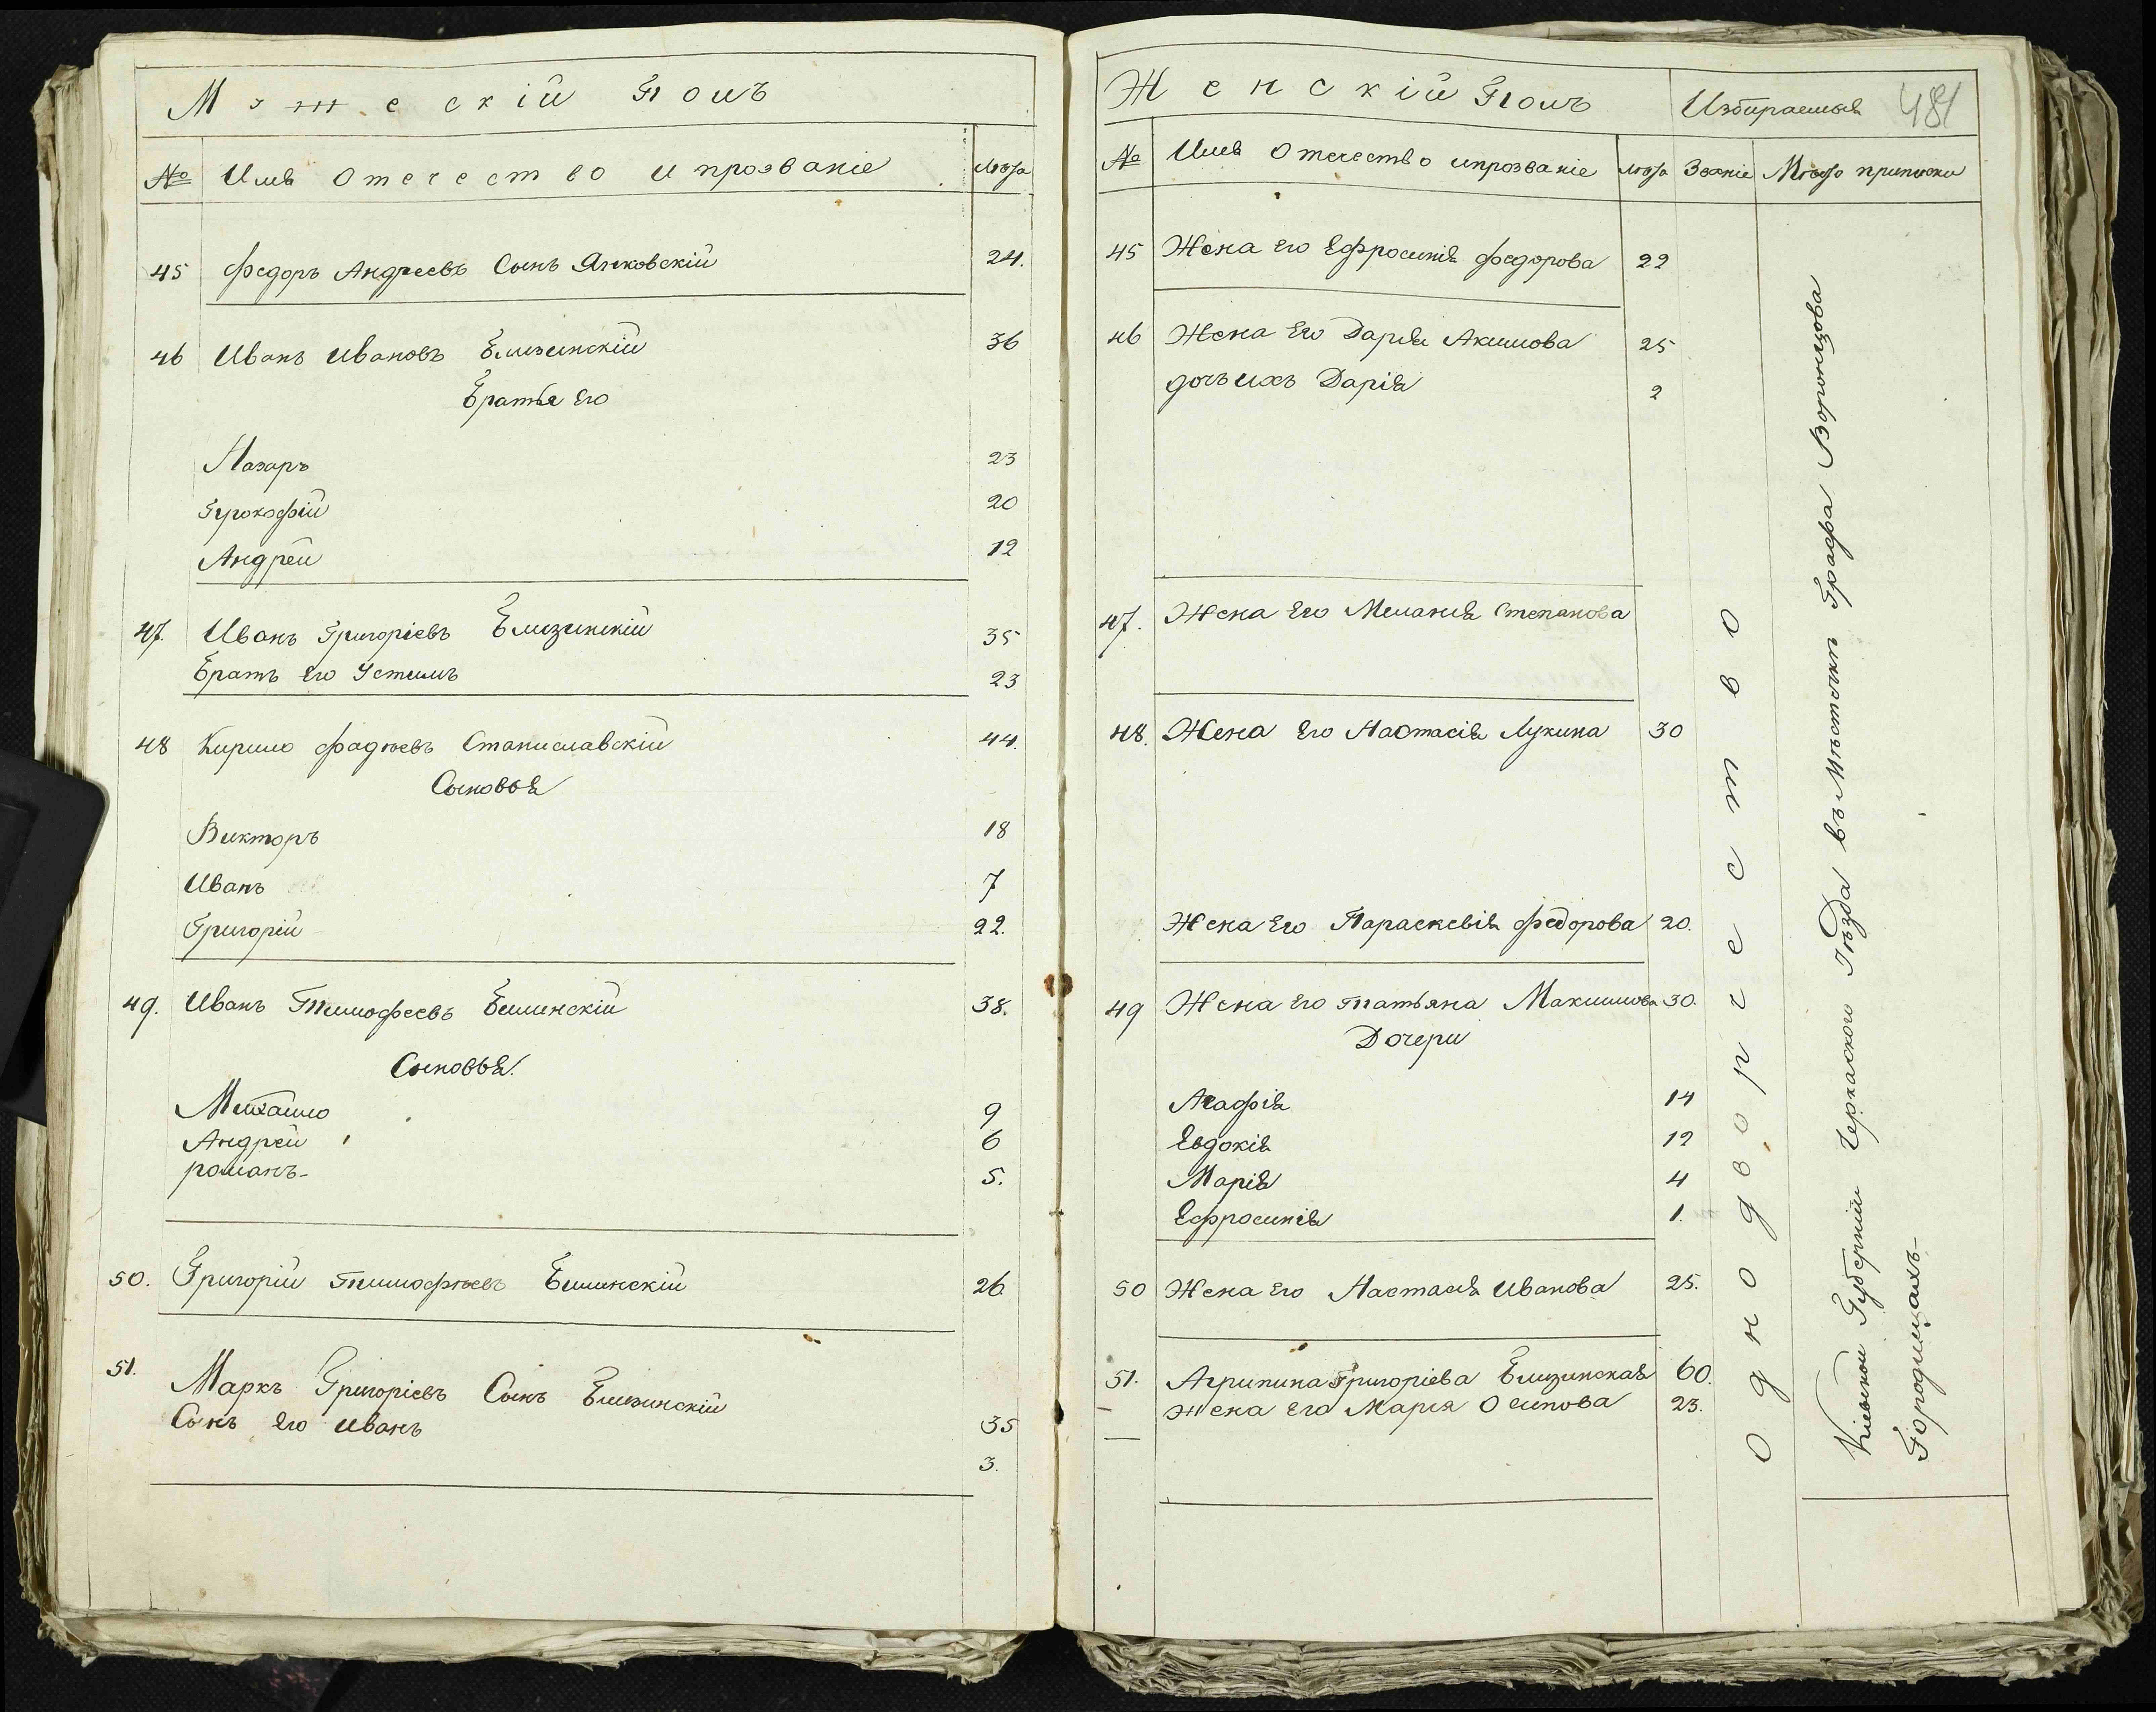 Мужескій Полъ
№ Имя Отечество и прозваніе Лѣта
45 Федоръ Андреевъ Сынъ Янковскій 24.
46 Иванъ Ивановъ Близинскій 36
Братья его
Лазарь 23
Прокофій 20
Андрей 12
47. Иванъ Григоріевъ Близинскій 35
Братъ его Устимъ 23
48 Кирило Фадѣевъ Станиславскій 44.
Сыновья
Викторъ 18
Иванъ 7
Григорій 22.
49. Иванъ Тимофеевъ Билинскій 38.
Сыновья.
Михайло 9
Андрей 6
романъ 5.
50. Григорій Тимофѣевъ Билинскій 26.
51. Маркъ Григоріевъ Сынъ Близинскій 35
Сынъ его Иванъ 3.
Женскій Полъ Избираемыя 481
№ Имя Отечество ипрозваніе Лѣта Званіе Мѣсто приписки
45 Жена его Ефросинія Федорова 22
46 Жена его Дарія Акимова 25
дочь ихъ Дарія 2
47. Жена его Меланія Степанова
48. Жена его Настасія Лукина 30
Жена его Параскевія Федорова 20.
49 Жена его Татьяна Макимова 30.
Дочери
Агафія 14
Евдокія 12
Марія 4
Ефросинія 1.
50 Жена его Настасія Иванова 25.
51. Агрипина Григоріева Близинская 60.
Жена его Марія Осипова 23.
Однодворчество
Кіевской Губерніи Черкаского Уѣзда въ Мѣстечкѣ Графа Воронцова
Городищахъ